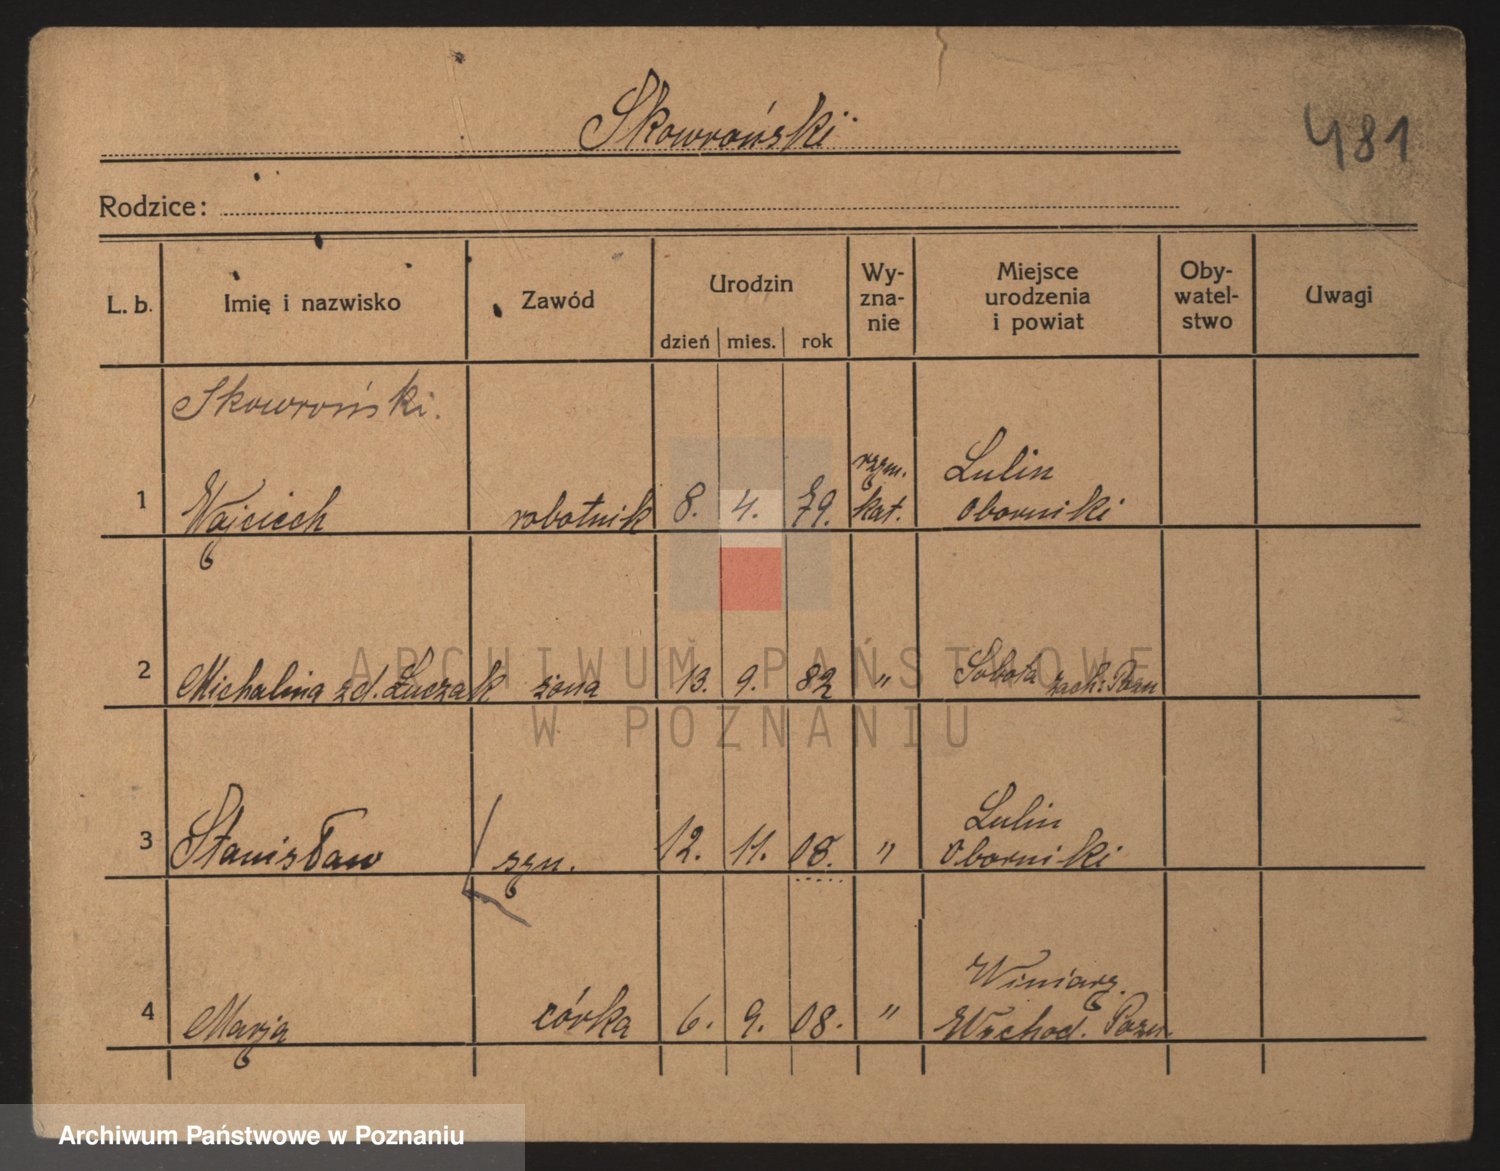 Skowroński
481
Rodzice:
L. b.
Imię i nazwisko
Zawód
Urodzin
dzień
mies.
rok
Wy-
zna-
nie
Miejsce
urodzenia
i powiat
Oby-
watel-
stwo
Uwagi
Skowroński.
1
Wojciech
robotnik
8.
4.
79.
rzym.
kat.
Lulin
Oborniki
2
Michalina zd. Łuczak
żona
13.
9.
82
"
Sobota
zach. Pozn
3
Stanisław
syn.
12.
11.
08.
"
Lulin
Oborniki
4
Marja
córka
6.
9.
08.
"
Winiary.
Wschod. Pozn
ARCHIWUM PAŃSTWOWE
W POZNANIU
Archiwum Państwowe w Poznaniu